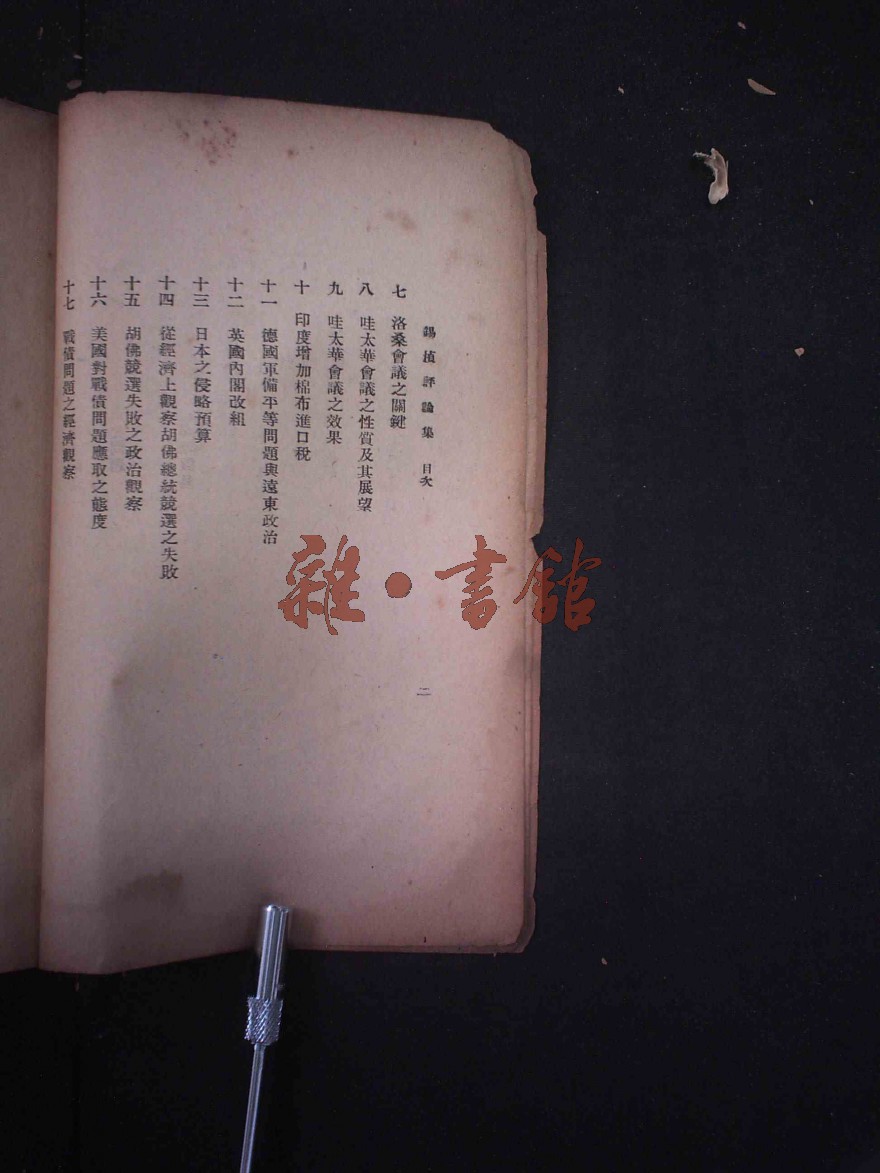 錫楨評論集　目次
二
七　洛桑會議之關鍵
八　哇太華會議之性質及其展望
九　哇太華會議之效果
十　印度增加棉布進口稅
十一　德國軍備平等問題與遠東政治
十二　英國內閣改組
十三　日本之侵略預算
十四　從經濟上觀察胡佛總統競選之失敗
十五　胡佛競選失敗之政治觀察
十六　美國對戰債問題應取之態度
十七　戰債問題之經濟觀察
雜·書館